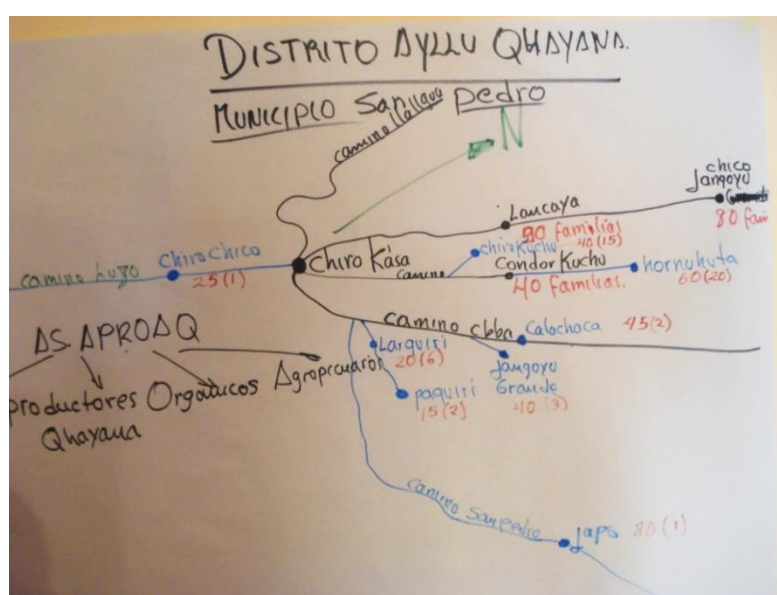 DISTRITO AYLLU QHAYANA.
MUNICIPIO San pedro
camino llallagua
N
chico
Jangoyu
80 fam
Laucaya
90 familias
chiroKuchu
40(15)
ChiroChico
25(1)
camino
chiro Kása
camino
Condor Kuchu
40 familias.
hornuhuta
60(20)
camino cbba
Calachaca 45(2)
AS. APROAQ
Larquiri
20(6)
Jangoyu
Grande
40 (3)
paquiri
15(2)
productores Orgánicos
Qhayana
camino San pedro
Japo 80(1)